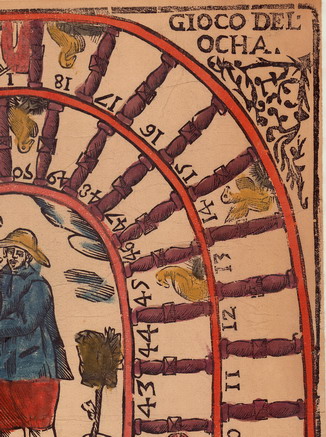 GIOCO DEL
OCHA.
18
17
16
15
14
13
12
11
50
49
48
47
46
45
44
43